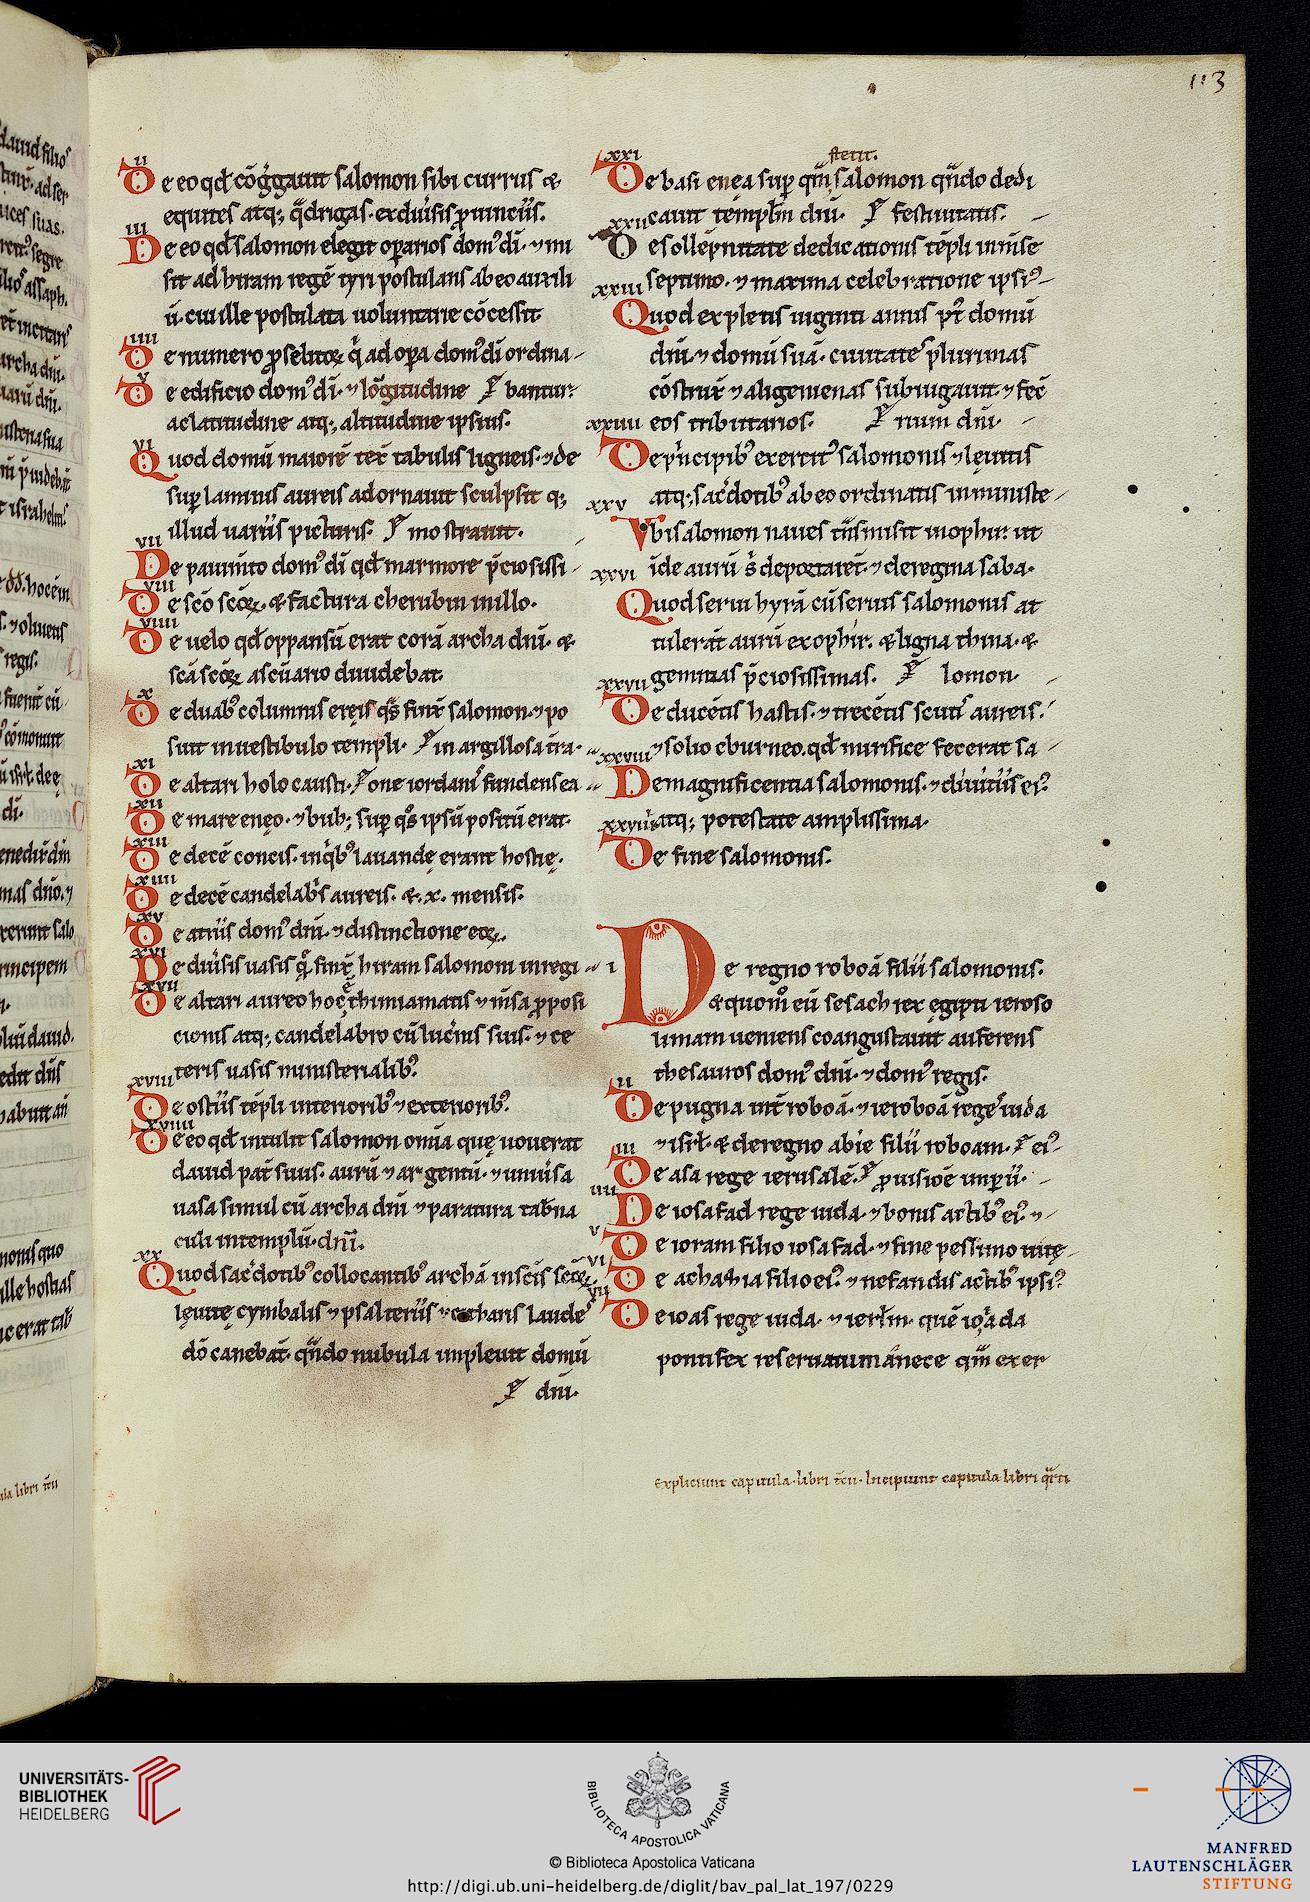 113
ii
De eo qd cōg̃gauit salomon sibi currus &
equites atq; q̈drigas. ex diũsis ꝓuinciis.
iii
De eo qd salomon elegit oꝑarios domꝰ dī. ⁊ mi
sit ad hiram regē tyri postulans ab eo auxili
ū. cui ille postulata uoluntarie cōcessit
iiii
De numero ꝓselitoꝝ q̇ ad oꝑa domꝰ dī ordina-
v
De edificio domꝰ dī. ⁊ lōgitudine bantur.
ac latitudine atq; altitudine ipsius.
vi
Quod domū maiorē tex̄ tabulis ligneis. ⁊ de
suꝑ laminis aureis adornauit sculpsit q;
illud uariis picturis. monstrauit.
vii
De pauim̄to domꝰ dī qd marmore p̄ciosissi-
viii
De sc̄o sc̄oꝝ. & factura cherubin in illo.
viiii
De uelo qd oppansū erat corā archa dnī. &
sc̄a sc̄oꝝ a sc̄uario diuidebat.
x
De duabꝰ columnis ereis q̈s finx̄ salomon. ⁊ po
suit in uestibulo templi. in argillosa tr̄a.
xi
De altari holocausti. one iordanis fundens ea
xii
De mare eneo. ⁊ bub; suꝑ q̊s ipsū positū erat.
xiii
De decē concis. in q̇bꝰ lauandę erant hostię.
xiiii
De decē candelabris aureis. &. x. mensis.
xv
De atriis domꝰ dnī. ⁊ distinctione eoꝝ.
xvi
De diũsis uasis q̈ finx̄ hiram salomoni in regi
xvii
De altari aureo hoc ē thimiamatis ⁊ m̄sa ꝓposi
cionis atq; candelabro cū luc̄nis suis. ⁊ ce
teris uasis ministerialibꝰ.
xviii
De ostiis tēpli interioribꝰ ⁊ exterioribꝰ.
xviiii
De eo qd intulit salomon om̄ia quę uouerat
dauid pat̄ suus. aurū ⁊ argentū. ⁊ uniũsa
uasa simul cū archa dnī ⁊ paratura tab̄na
culi in templū. dnī.
xx
Quod sac̄dotibꝰ collocantibꝰ archā in sc̄is sc̄oꝝ
leuitę cymbalis ⁊ psalteriis ⁊ citharis laude
dō canebāt. q̄ndo nubula impleuit domū
dnī.
xxi
stetit.
De basi enea suꝑ qm̄ salomon q̄ndo dedi
cauit templm̄ dnī. festiuitatis.
xxii
De sollēpnitate dedicationis tēpli in m̄se
septimo. ⁊ maxima celebratione ipsiꝰ
xxiii
Quod expletis uiginti annis pꝰ domū
dnī. ⁊ domū suā. ciuitates plurimas
cōstrux̄ ⁊ aligenienas subiugauit. ⁊ fec̄
eos tributarios. rium dnī.
xxiiii
De p̄ncipibꝰ exercitꝰ salomonis ⁊ leuitis
atq; sac̄dotibꝰ ab eo ordinatis in ministe-
xxv
Vbi salomon naues t̄nsmisit in ophir. ut
īde aurū s̄ deportaret. ⁊ de regina saba.
xxvi
Quod serui hyrā cū seruis salomonis at
tulerāt aurū ex ophir. & ligna thina. &
gemmas p̄ciosissimas. lomon.
xxvii
De ducētis hastis. ⁊ trecētis scutis aureis.
⁊ solio eburneo. qd mirifice fecerat sa
xxviii
De magnificentia salomonis. ⁊ diuitiis eiꝰ
atq; potestate amplissima.
xxviiii
De fine salomonis.
i
De regno roboā filii salomonis.
& quom̊ eū sesach rex egipti ieroso
limam ueniens coangustauit auferens
thesauros domꝰ dnī. ⁊ domꝰ regis.
ii
De pugna int̄ roboā. ⁊ ieroboā reges iuda
⁊ isrł. & de regno abie filii roboam. eiꝰ.
iii
De asa rege ierusalē. ꝓuisiōe impii.
iiii
De iosafad rege iuda. ⁊ bonis actibꝰ eiꝰ. ⁊
v
De ioram filio iosafad. ⁊ fine pessimo uite
vi
De achazia filio eiꝰ. ⁊ nefandis actibꝰ ipsiꝰ
vii
De ioas rege iuda. ⁊ ierłm. quē ioiada
pontifex reseruatum a nece qm̄ exer
Expliciunt capitula. libri t̄cii. Incipiunt capitula libri q̈rti
UNIVERSITÄTS-
BIBLIOTHEK
HEIDELBERG
BIBLIOTECA APOSTOLICA VATICANA
© Biblioteca Apostolica Vaticana
http://digi.ub.uni-heidelberg.de/diglit/bav_pal_lat_197/0229
MANFRED
LAUTENSCHLÄGER
STIFTUNG